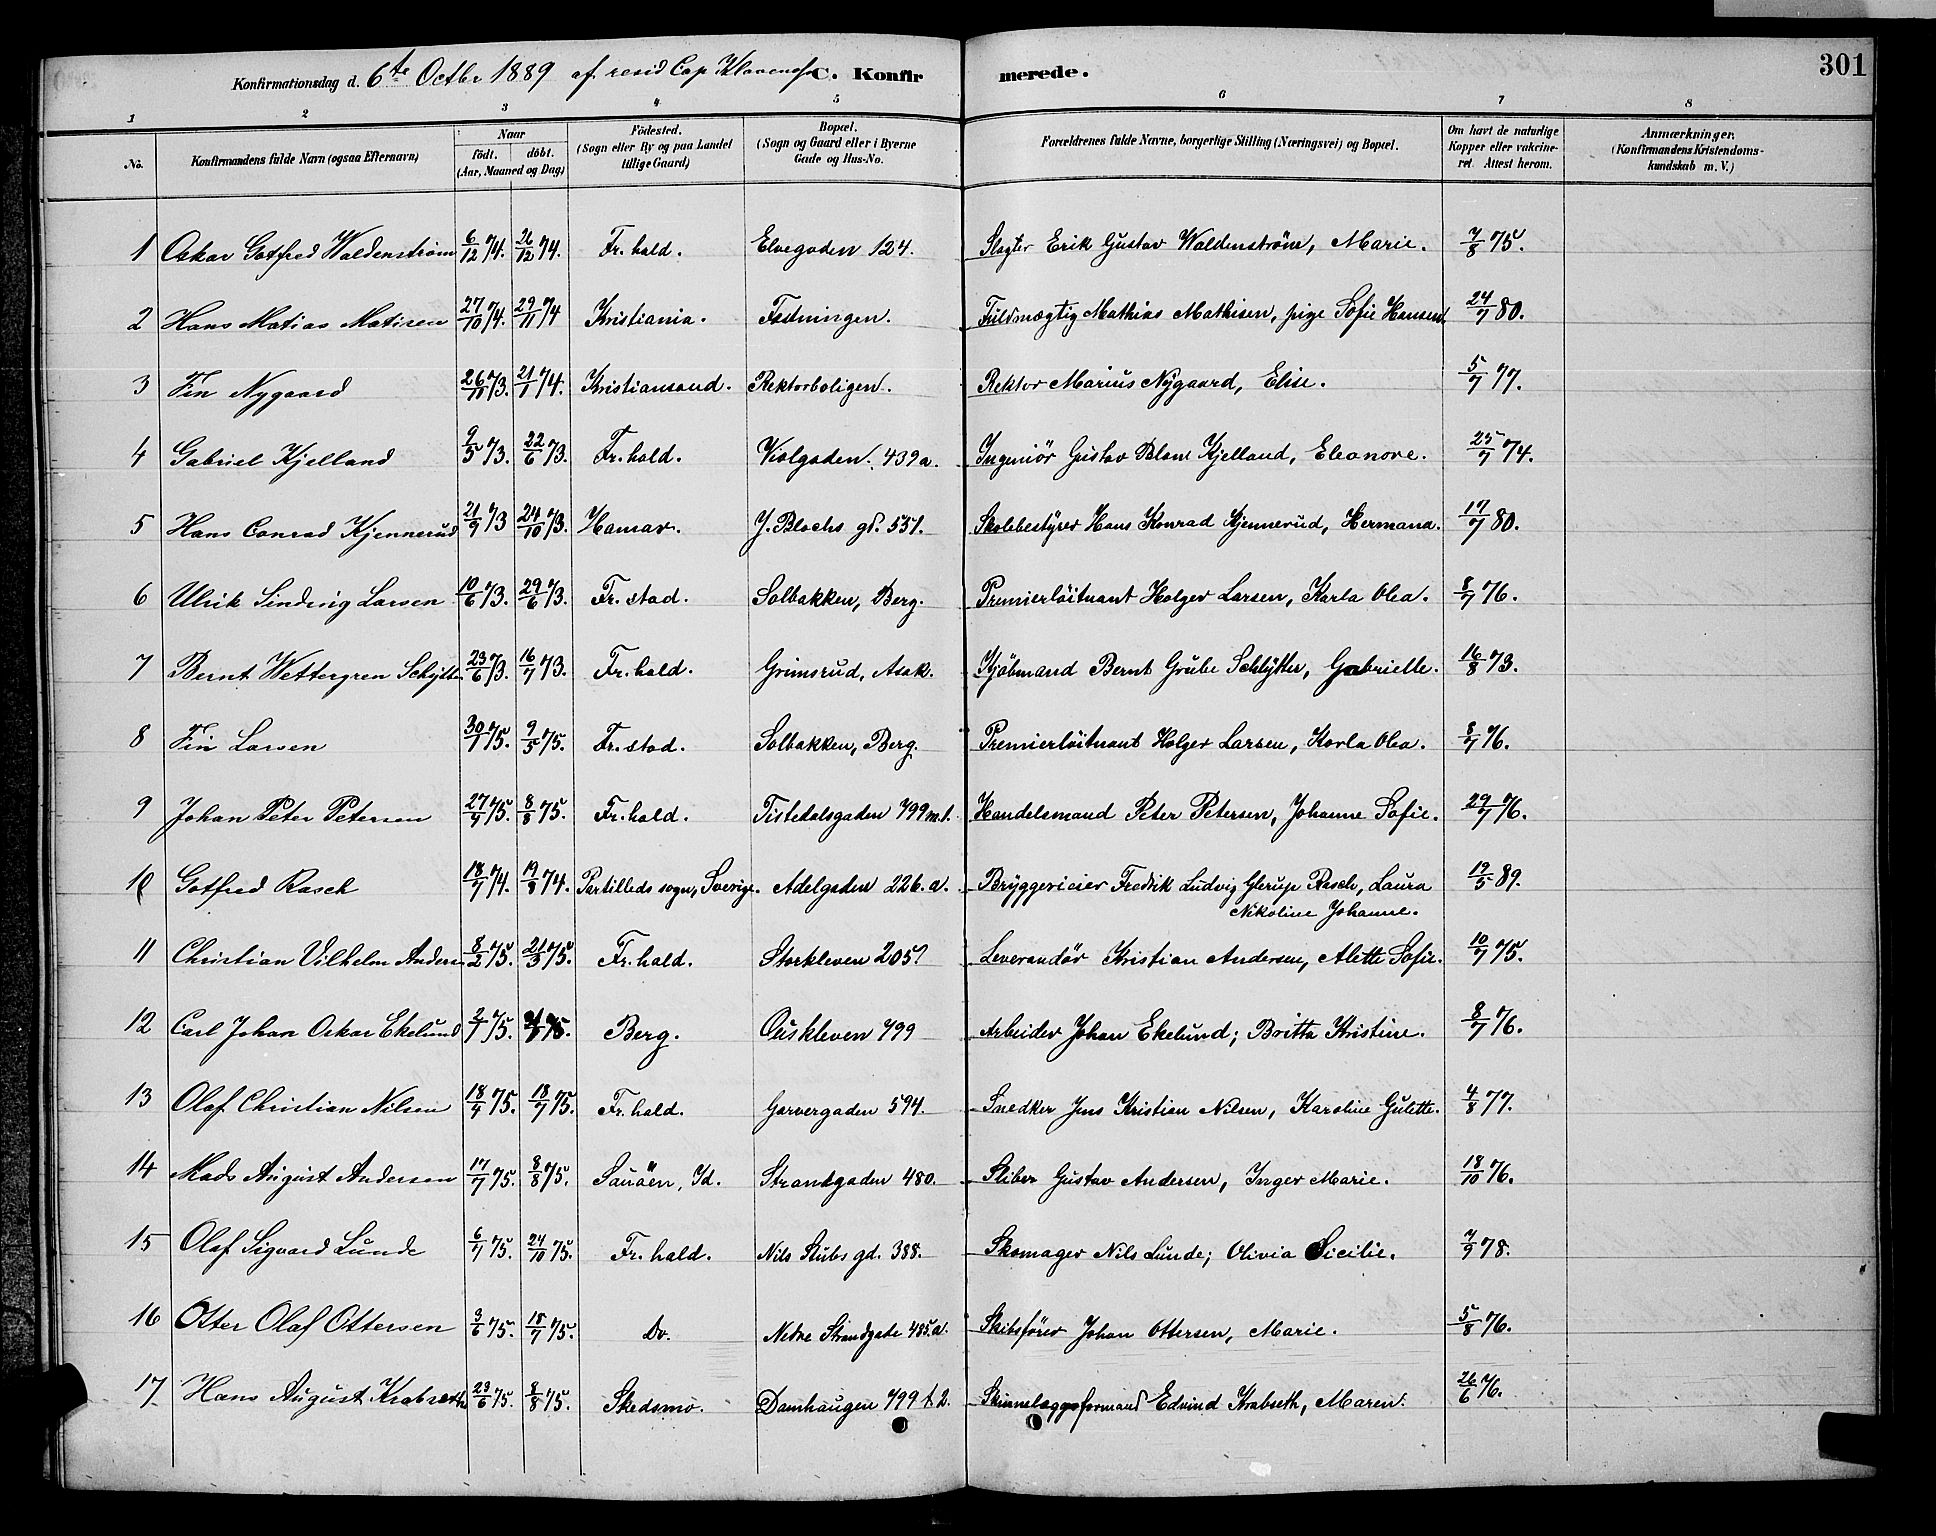 301
Konfirmationsdag d. 6te Octbr 1889 af resid Cap Klavenes C. Konfirmerede.
1 2 3 4 5 6 7 8
No. Konfirmandens fulde Navn (ogsaa Efternavn) Naar födt. döbt. (Aar, Maaned og Dag) Födested. (Sogn eller By og paa Landet tillige Gaard) Bopæl. (Sogn og Gaard eller i Byerne Gade og Hus-No. Forældrenes fulde Navne, borgerlige Stilling (Næringsvei) og Bopæl. Om havt de naturlige Kopper eller vakcineret. Attest herom. Anmærkninger. (Konfirmandens Kristendomskundskab m. V.)
1 Oskar Gotfred Waldenström 6/12 74. 26/12 74. Fr.hald. Elvegaden 124. Slagter Erik Gustav Waldenströme, Marie. 7/8 75.
2 Hans Matias Matisen 27/10 74. 29/11 74 Kristiania. Festningen. Fuldmægtig Mathias Mathisen, pige Sofie Hansen. 24/7 80.
3 Fin Nygaard 26/11 73. 21/1 74. Kristiansand. Rektorboligen. Rektor Marius Nygaard, Elise. 5/7 77.
4 Gabriel Kjelland 9/5 73. 22/6 73. Fr.hald. Violgaden. 439a. Ingeniör Gustav Blom Kjelland, Eleonore. 25/7 74.
5 Hans Conrad Kjennerud 21/9 73 24/10 73. Hamar. J. Blochs gd. 551. Skolebestyrer Hans Konrad Kjennerud, Hermana. 17/7 80.
6 Ulrik Sinding Larsen 10/6 73. 29/6 73. Fr.stad. Solbakken, Berg. Premierlöitnant Holger Larsen, Karla Olea. 8/7 76.
7 Bernt Wettergren Schlytter 23/6 73. 16/7 73. Fr.hald. Grimsrud, Asak. Kjöbmand Bernt Grube Schlytter, Gabrielle. 16/8 73.
8 Fin Larsen 30/1 75. 9/5 75. Fr.stad. Solbakken, Berg. Premierlöitnant Holger Larsen, Karla Olea. 8/7 76.
9 Johan Peter Petersen 27/4 75. 8/8 75. Fr.hald. Tistedalsgaden 799 m.1. Handelsmand Peter Petersen, Johanne Sofie. 29/7 76.
10 Gotfred Rasch 18/7 74. 19/8 74. Partilleds sogn, Sverige. Adelgaden 226.a. Bryggerieier Fredrik Ludvig Glerup Rasch, Laura
Nikoline Johanne. 19/5 89.
11 Christian Vilhelm Andersen 8/2 75. 21/3 75. Fr.hald. Storkleven 205? Leverandör Kristian Andersen, Alette Sofie. 10/7 75.
12 Carl Johan Oskar Ekelund 2/1 75. 75. Berg. Ouskleven 799 Arbeider Johan Ekelund; Britta Kristine. 8/7 76.
13 Olaf Christian Nilsen 18/4 75. 18/7 75. Fr.hald. Garvergaden 594. Snedker Jens Kristian Nilsen, Karoline Gulette. 4/8 77.
14 Mads August Andersen 17/7 75. 8/8 75. Sauöen, Id. Strandgaden 480. Sliber Gustav Andersen, Inger Marie. 18/10 76.
15 Olaf Sigvard Lunde 6/7 75. 24/10 75. Fr.hald. Nils Stubs gd. 388. Skomager Nils Lunde; Olivia Sicilie. 7/9 78.
16 Otter Olaf Ottersen 3/6 75. 18/7 75. Do. Nedre Strandgade 485.a. Skibsförer Johan Ottersen, Marie. 5/8 76.
17 Hans August Krabseth 23/6 75. 8/8 75. Skedsmo. Damhaugen 799 t2. Skinnelægerformand Edvind Krabseth, Maren. 26/6 76.